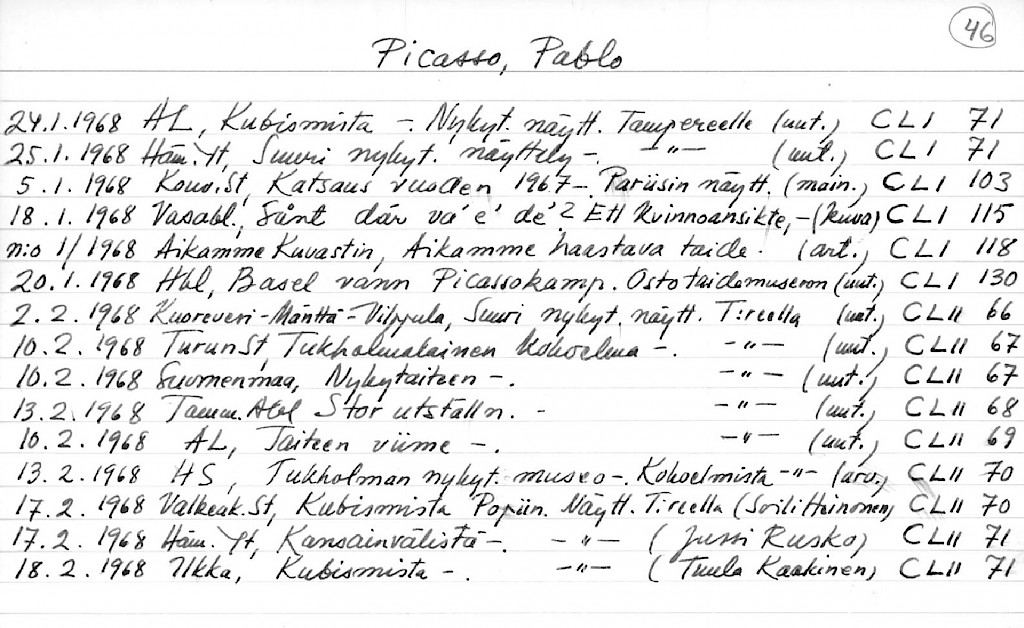 46
Picasso, Pablo
24.1.1968 AL, Kubismista -. Nykyt. näytt. Tampereelle (uut.) CLI 71
25.1.1968 Häm.Yt, Suuri nykyt. näyttely -. -"- (uut.) CLI 71
5.1.1968 Kouv.St, Katsaus vuoden 1967 -. Pariisin näytt. (main.) CLI 103
18.1.1968 Vasabl., Sånt där va' e' de'? Ett kvinnoansikte, - (kuva) CLI 115
n:o 1/1968 Aikamme Kuvastin, Aikamme haastava taide. (art.) CLI 118
20.1.1968 Hbl, Basel vann Picassokamp. Osto taidemuseoon (uut.) CLI 130
2.2.1968 Kuorevesi-Mänttä-Vilppula, Suuri nykyt. näytt. T:reella (uut.) CLII 66
10.2.1968 TurunSt, Tukholmalainen kokoelma -. -"- (uut.) CLII 67
10.2.1968 Suomenmaa, Nykytaiteen -. -"- (uut.) CLII 67
13.2.1968 Tamm.Abl Stor utställn. - -"- (uut.) CLII 68
10.2.1968 AL, Taiteen viime -. -"- (uut.) CLII 69
13.2.1968 HS, Tukholman nykyt. museo -. Kokoelmista -"- (arv.) CLII 70
17.2.1968 Valkeak.St, Kubismista Popiin. Näytt. T:reella (Soili Heinonen) CLII 70
17.2.1968 Häm.Yt, Kansainvälistä -. -"- (Jussi Rusko) CLII 71
18.2.1968 Ilkka, Kubismista -. -"- (Tuula Kaakinen) CLII 71